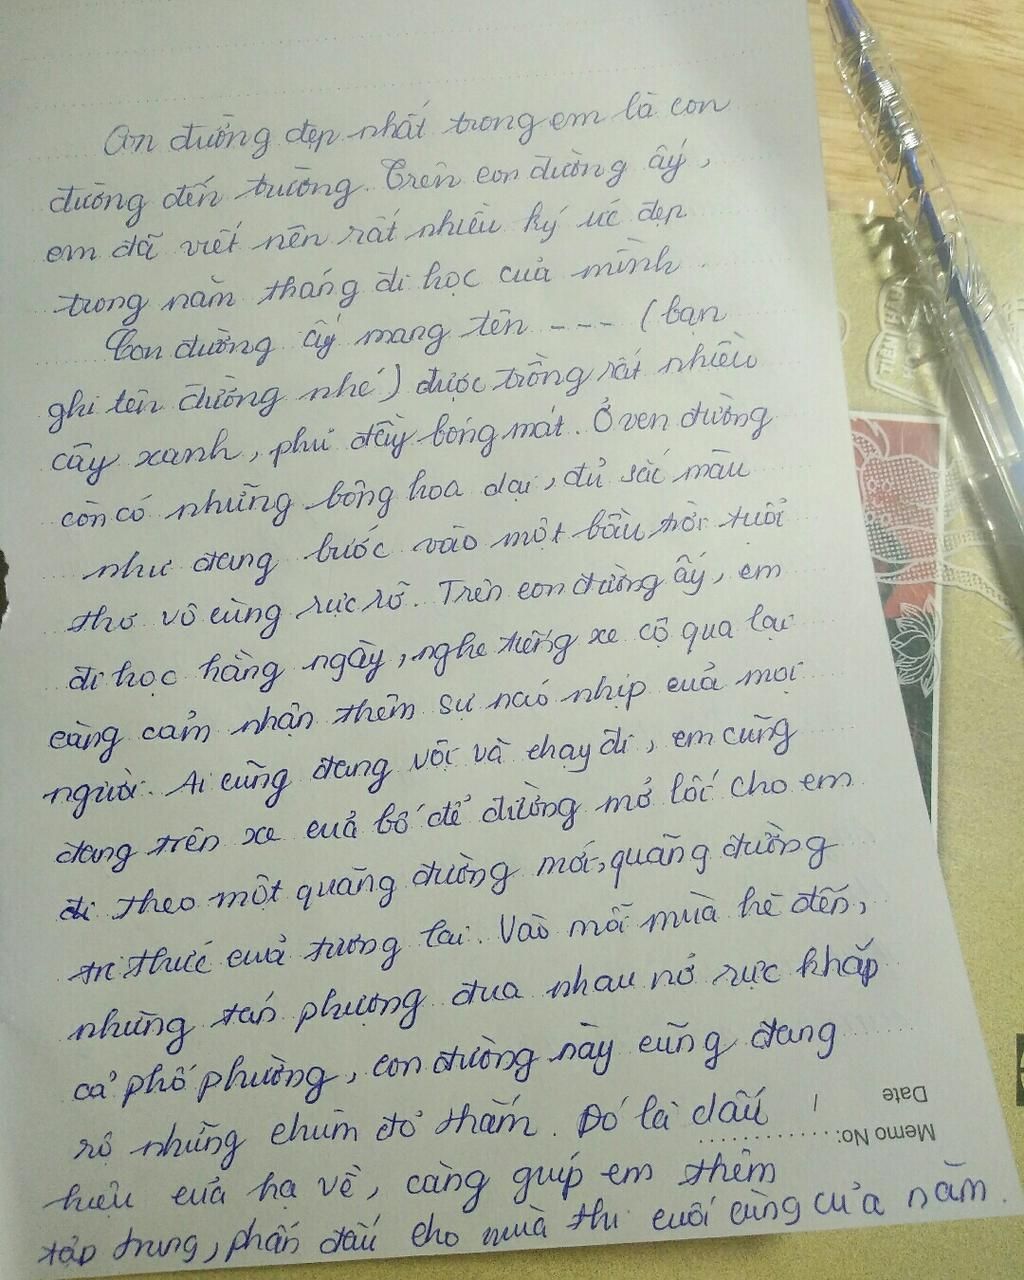 Con đường đẹp nhất trong em là con
đường đến trường. Trên con đường ấy,
em đã viết nên rất nhiều ký ức đẹp
trong năm tháng đi học của mình.
Con đường ấy mang tên --- (bạn
ghi tên đường nhé) được trồng rất nhiều
cây xanh, phủ đầy bóng mát. Ở ven đường
còn có những bông hoa dại, đủ sắc màu
như đang bước vào một bầu trời tuổi
thơ vô cùng rực rỡ. Trên con đường ấy, em
đi học hằng ngày, nghe tiếng xe cộ qua lại
càng cảm nhận thêm sự náo nhịp của mọi
người. Ai cũng đang vội vã chạy đi, em cũng
đang trên xe của bố để đường mở lối cho em
đi theo một quãng đường mới, quãng đường
tri thức của tương lai. Vào mỗi mùa hè đến,
những tán phượng đua nhau nở rực khắp
cả phố phường, con đường này cũng đang
rộ những chùm đỏ thắm. Đó là dấu
hiệu của hạ về, càng giúp em thêm
tập trung, phấn đấu cho mùa thi cuối cùng của năm.
Memo No:
Date /
TIẾN